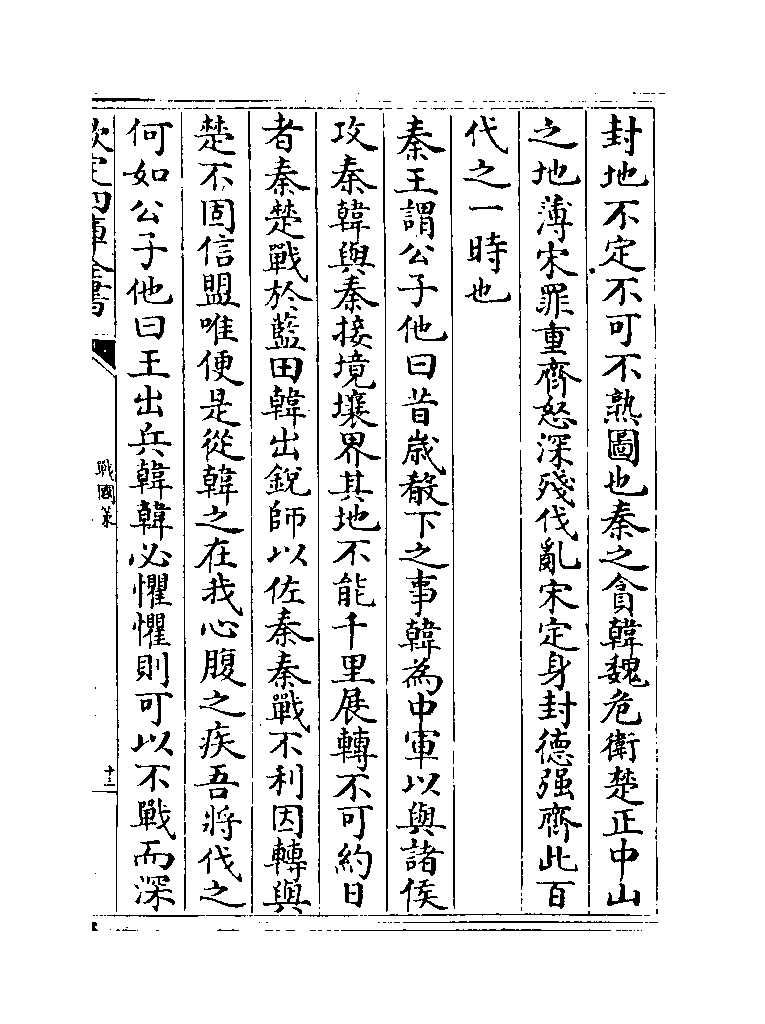 封地不定不可不熟圖也秦之貪韓魏危衛楚正中山
之地薄宋罪重齊怒深殘伐亂宋定身封德强齊此百
代之一時也
秦王謂公子他曰昔歲殽下之事韓為中軍以與諸侯
攻秦韓與秦接境壤界其地不能千里展轉不可約日
者秦楚戰於藍田韓出銳師以佐秦秦戰不利因轉與
楚不固信盟唯便是從韓之在我心腹之疾吾將伐之
何如公子他曰王出兵韓韓必懼懼則可以不戰而深
欽定四庫全書
戰國策
十二